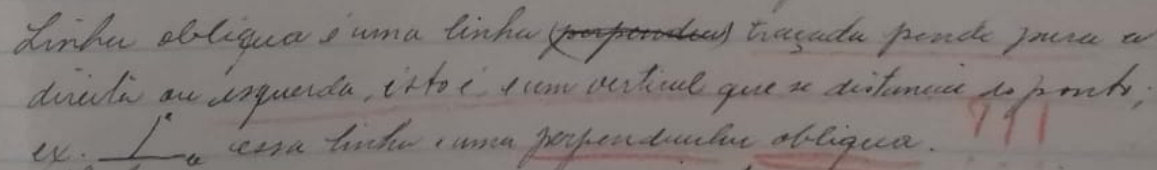 Linha obliqua é uma linha (perpendica) traçada pende para a
direita ou esquerda, isto é, é um vertical que se distancia do ponto;
ex. essa linha é uma perpendicular obliqua. ???